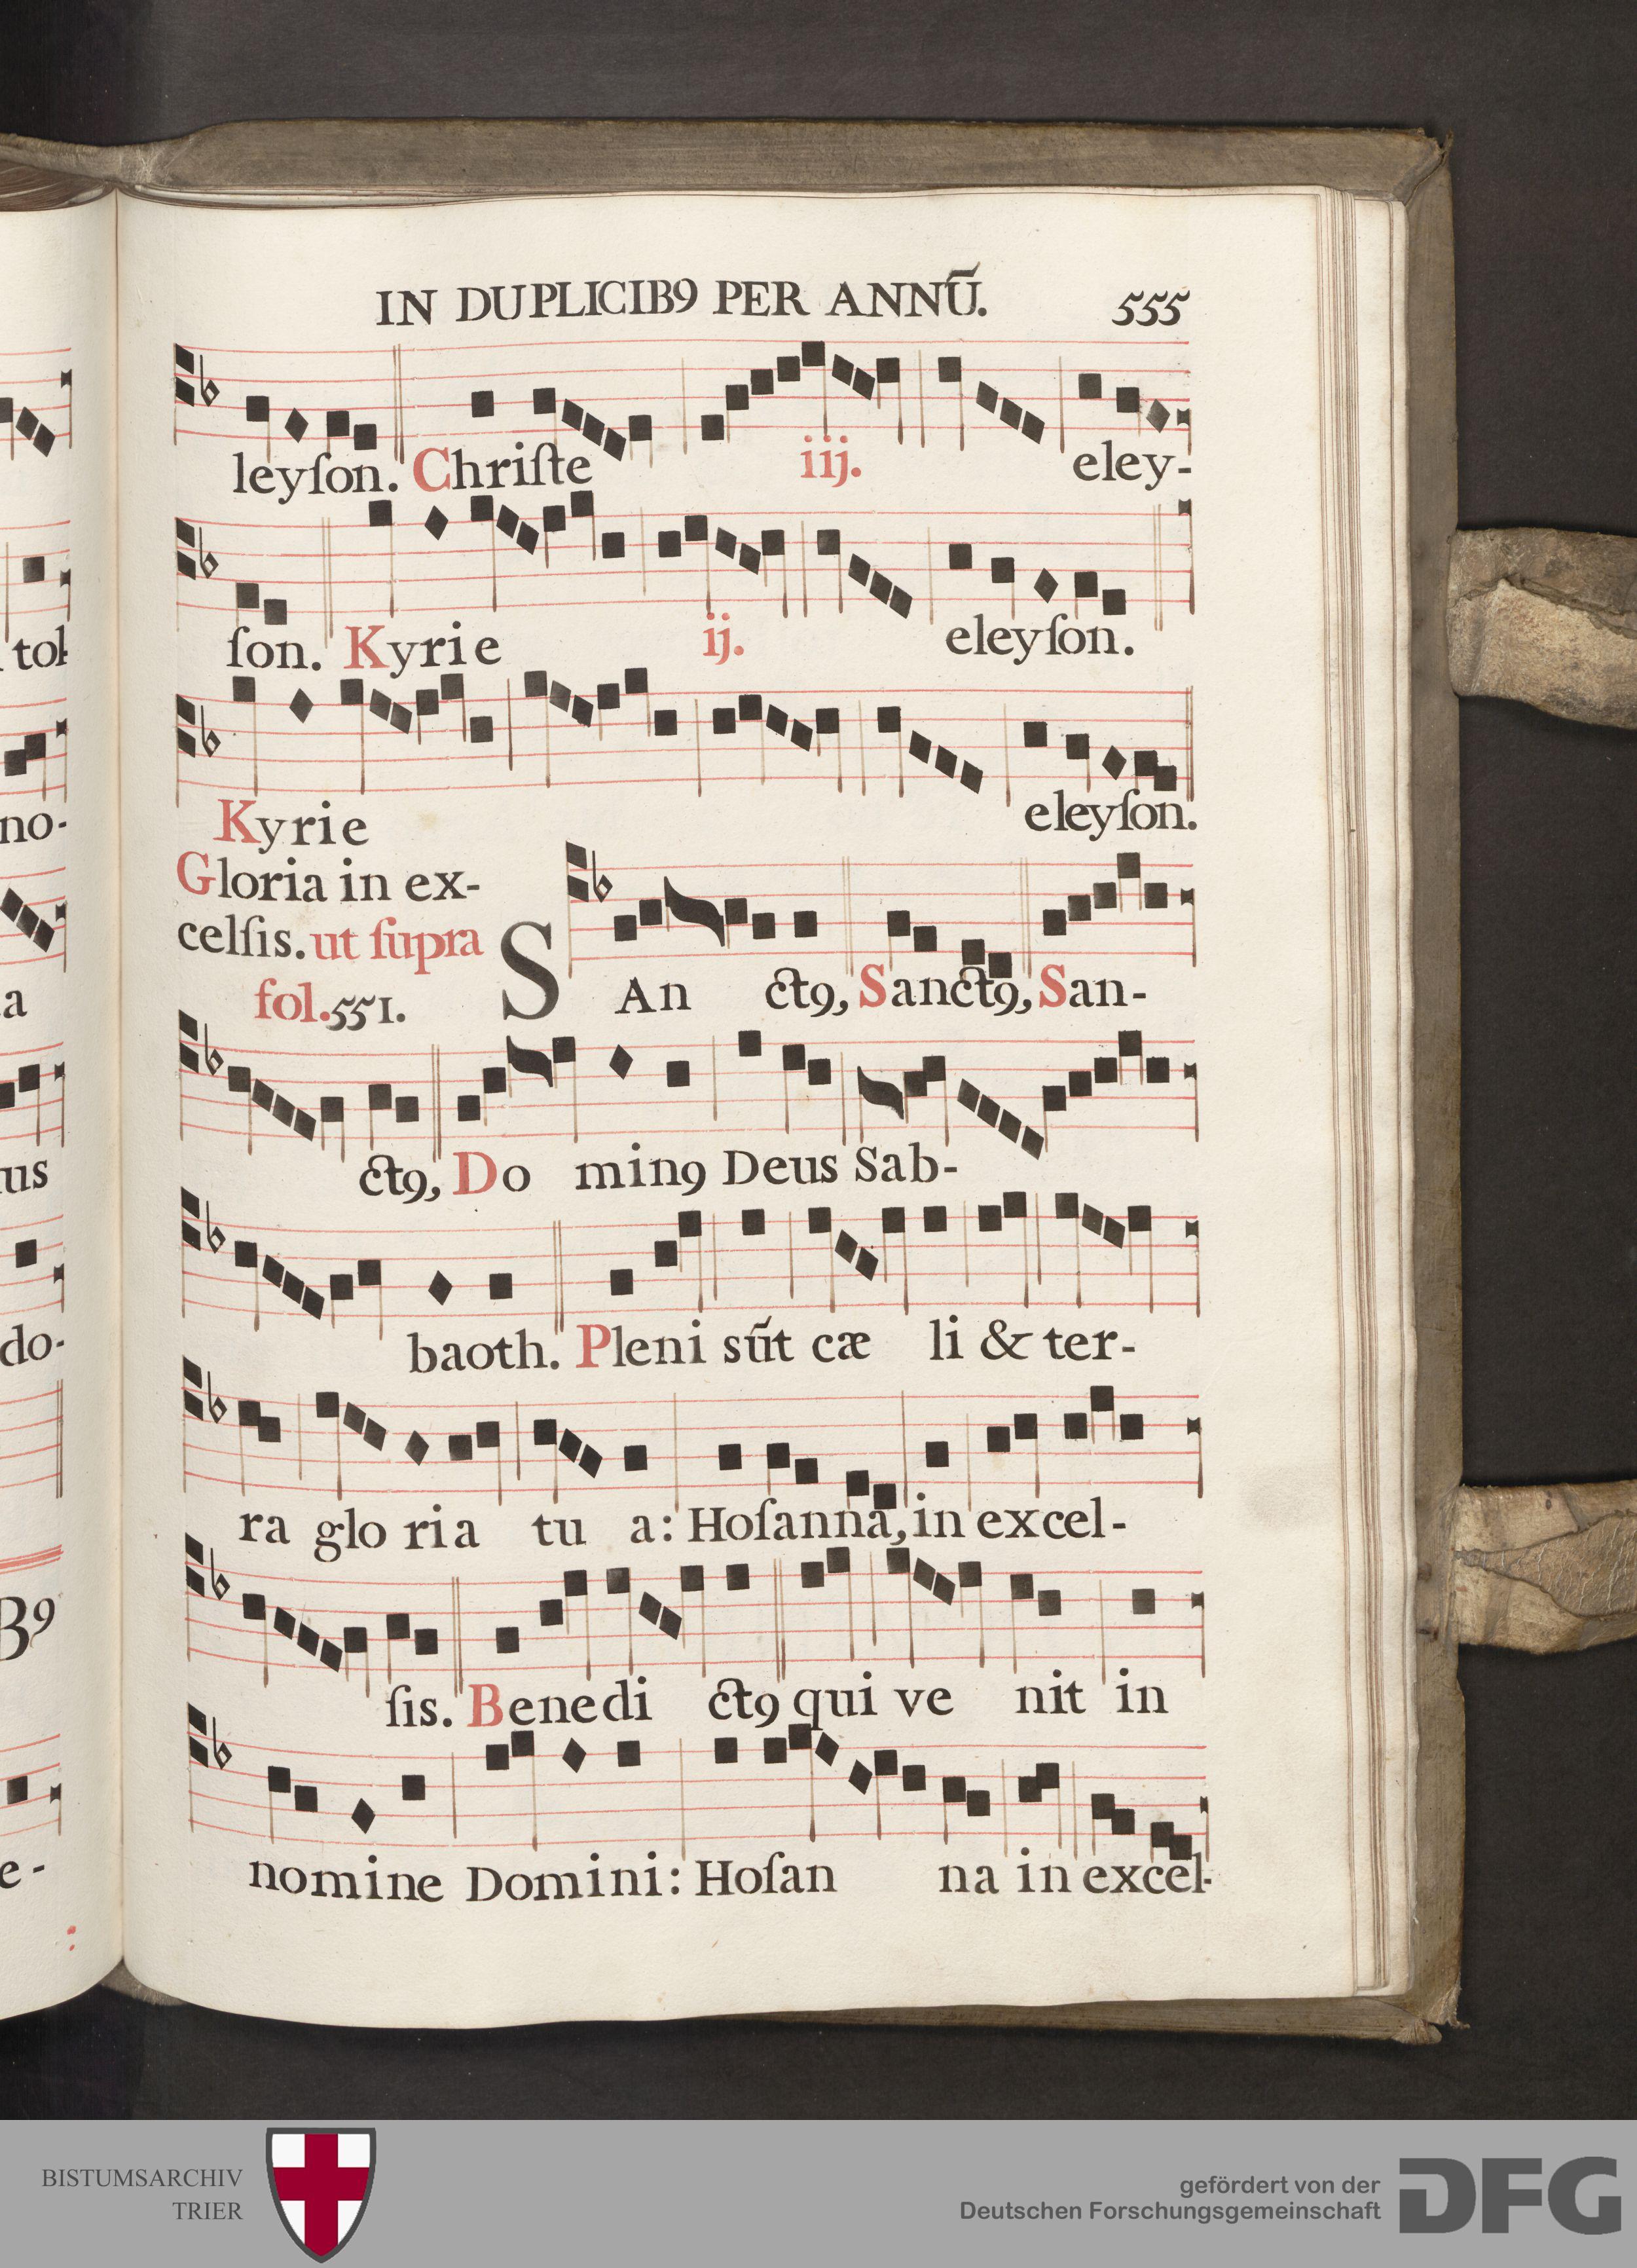 IN DUPLICIB9 PER ANNŪ. 555
leyſon. Chriſte iij. eley-
ſon. Kyrie ij. eleyſon.
Kyrie eleyſon.
Gloria in ex-
celſis. ut ſupra
fol. 551.
SAn ct9, Sanct9, San-
ct9, Do min9 Deus Sab-
baoth. Pleni sūt cæ li & ter-
ra glo ria tu a: Hoſanna, in excel-
ſis. Benedi ct9 qui ve nit in
nomine Domini: Hoſan na in excel-
tol
no-
a
us
do-
B9
e-
BISTUMSARCHIV
TRIER
gefördert von der
Deutschen Forschungsgemeinschaft
DFG